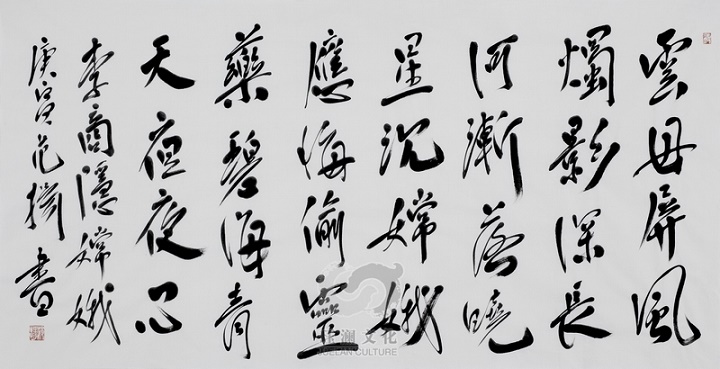 雲母屏風
燭影深長
河漸落曉
星沉嫦娥
應悔偷靈
藥碧海青
天夜夜心
李商隱嫦娥
庚寅范 書
瀾文化
CELAN CULTURE